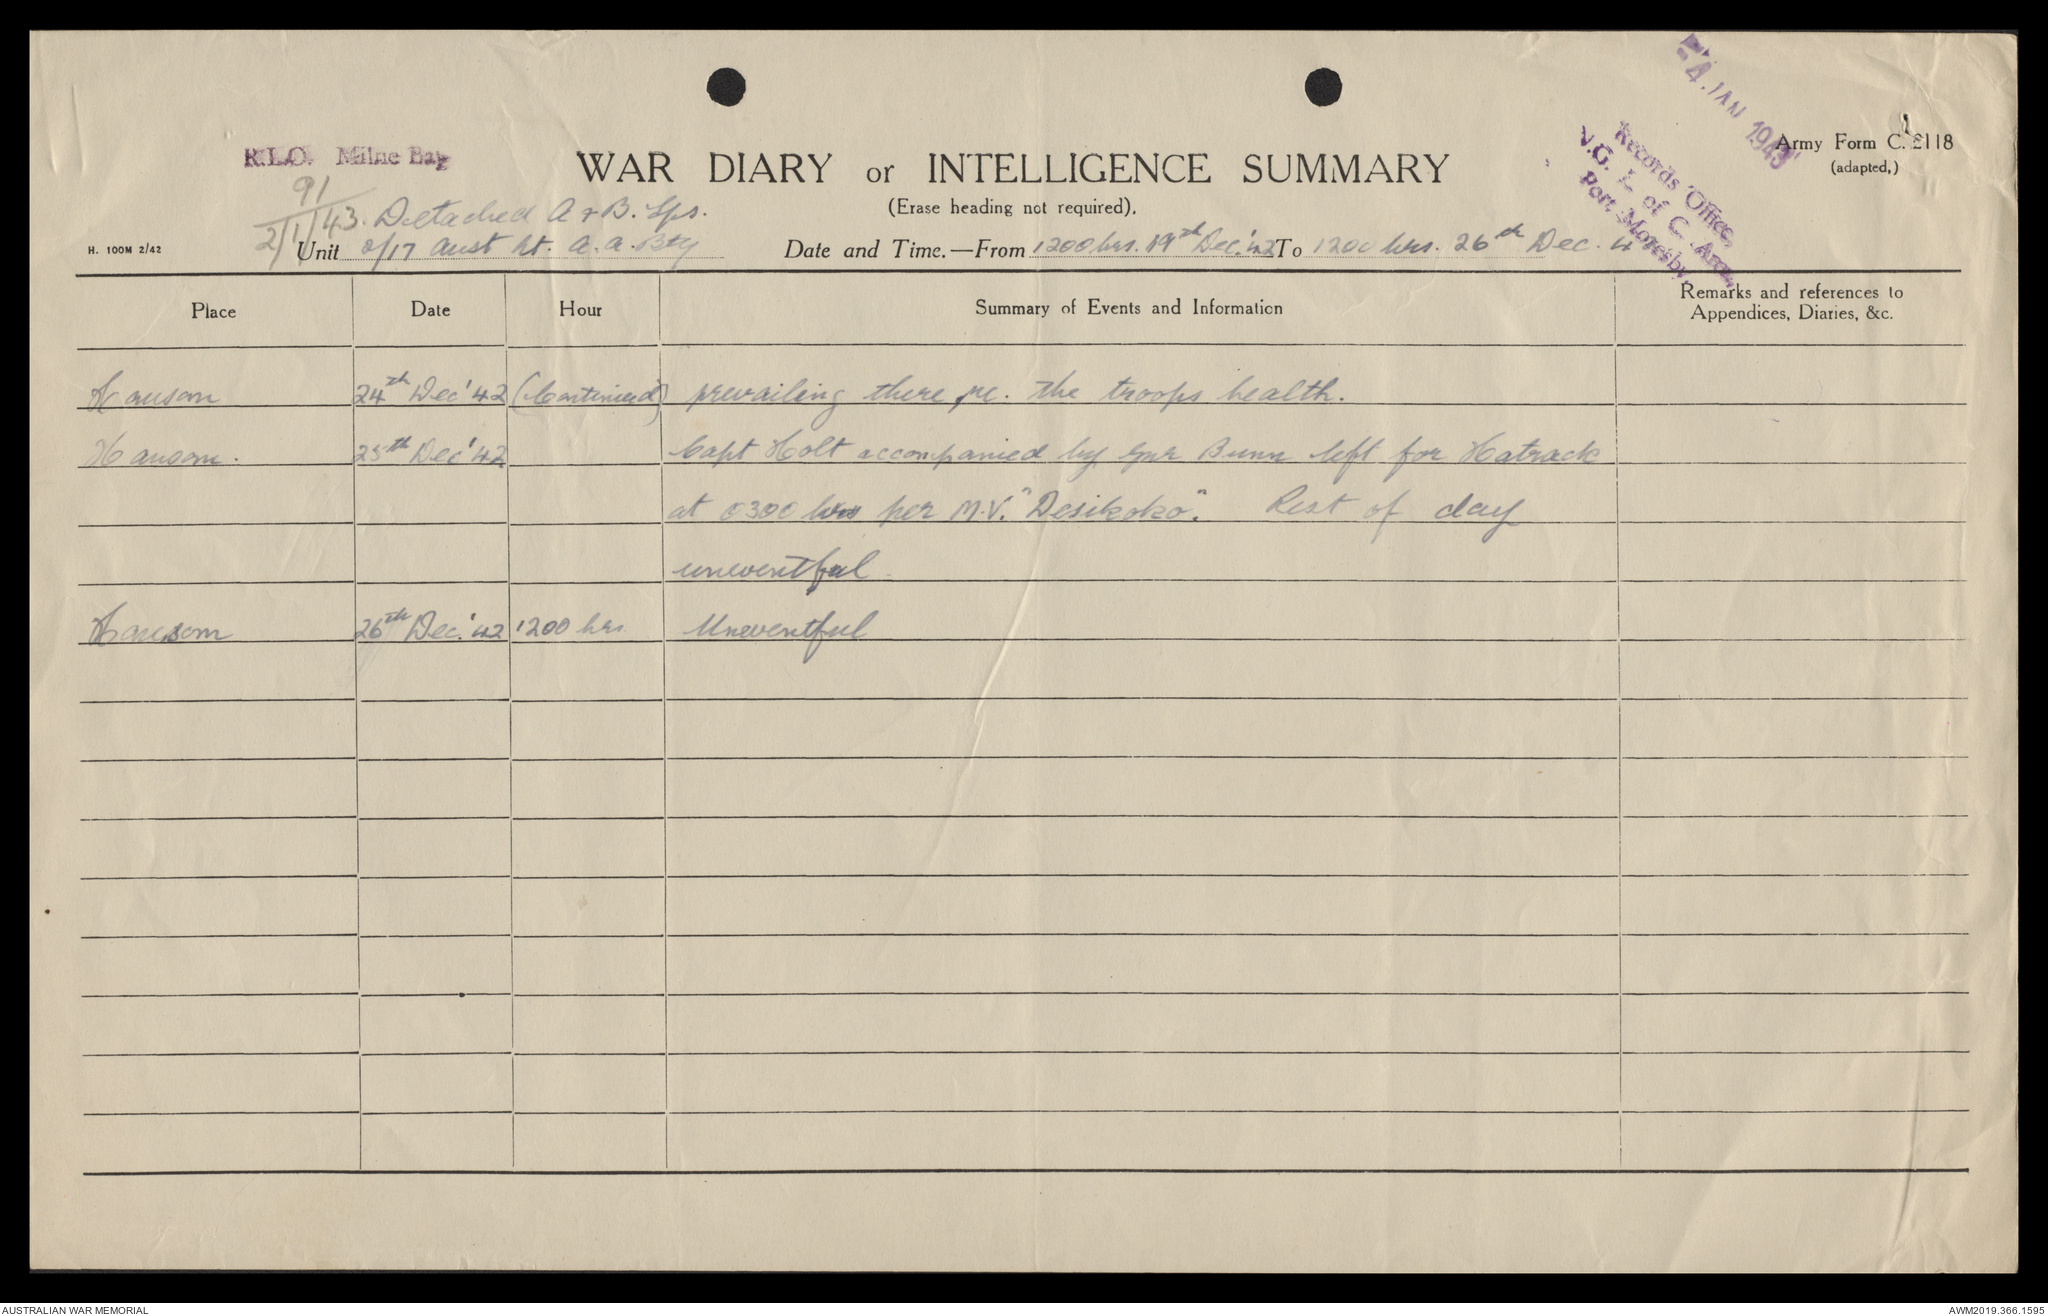 - 4. JAN 1943
Records Office,
N.G. L. of C. Area,
Port Moresby.
Army Form C. 2118
(adapted,)
R.L.O. Milne Bay
91
2/1/43.
WAR DIARY or INTELLIGENCE SUMMARY
(Erase heading not required).
Detached A & B. Gps.
H. 100M 2/42
Unit 2/17 Aust Lt. A.A. Bty
Date and Time.—From 1200 hrs. 19th Dec. '42 To 1200 hrs. 26th Dec. 42
Place Date Hour Summary of Events and Information Remarks and references to
Appendices, Diaries, &c.
Hansom 24th Dec '42 (Continued) prevailing there re. the troops health.
Hansom. 25th Dec '42 Capt Holt accompanied by Gnr Bunn left for Hatrack
at 0300 hrs per M.V. "Desikoko". Rest of day
uneventful.
Hansom 26th Dec. '42 1200 hrs Uneventful
AUSTRALIAN WAR MEMORIAL
AWM2019.366.1595